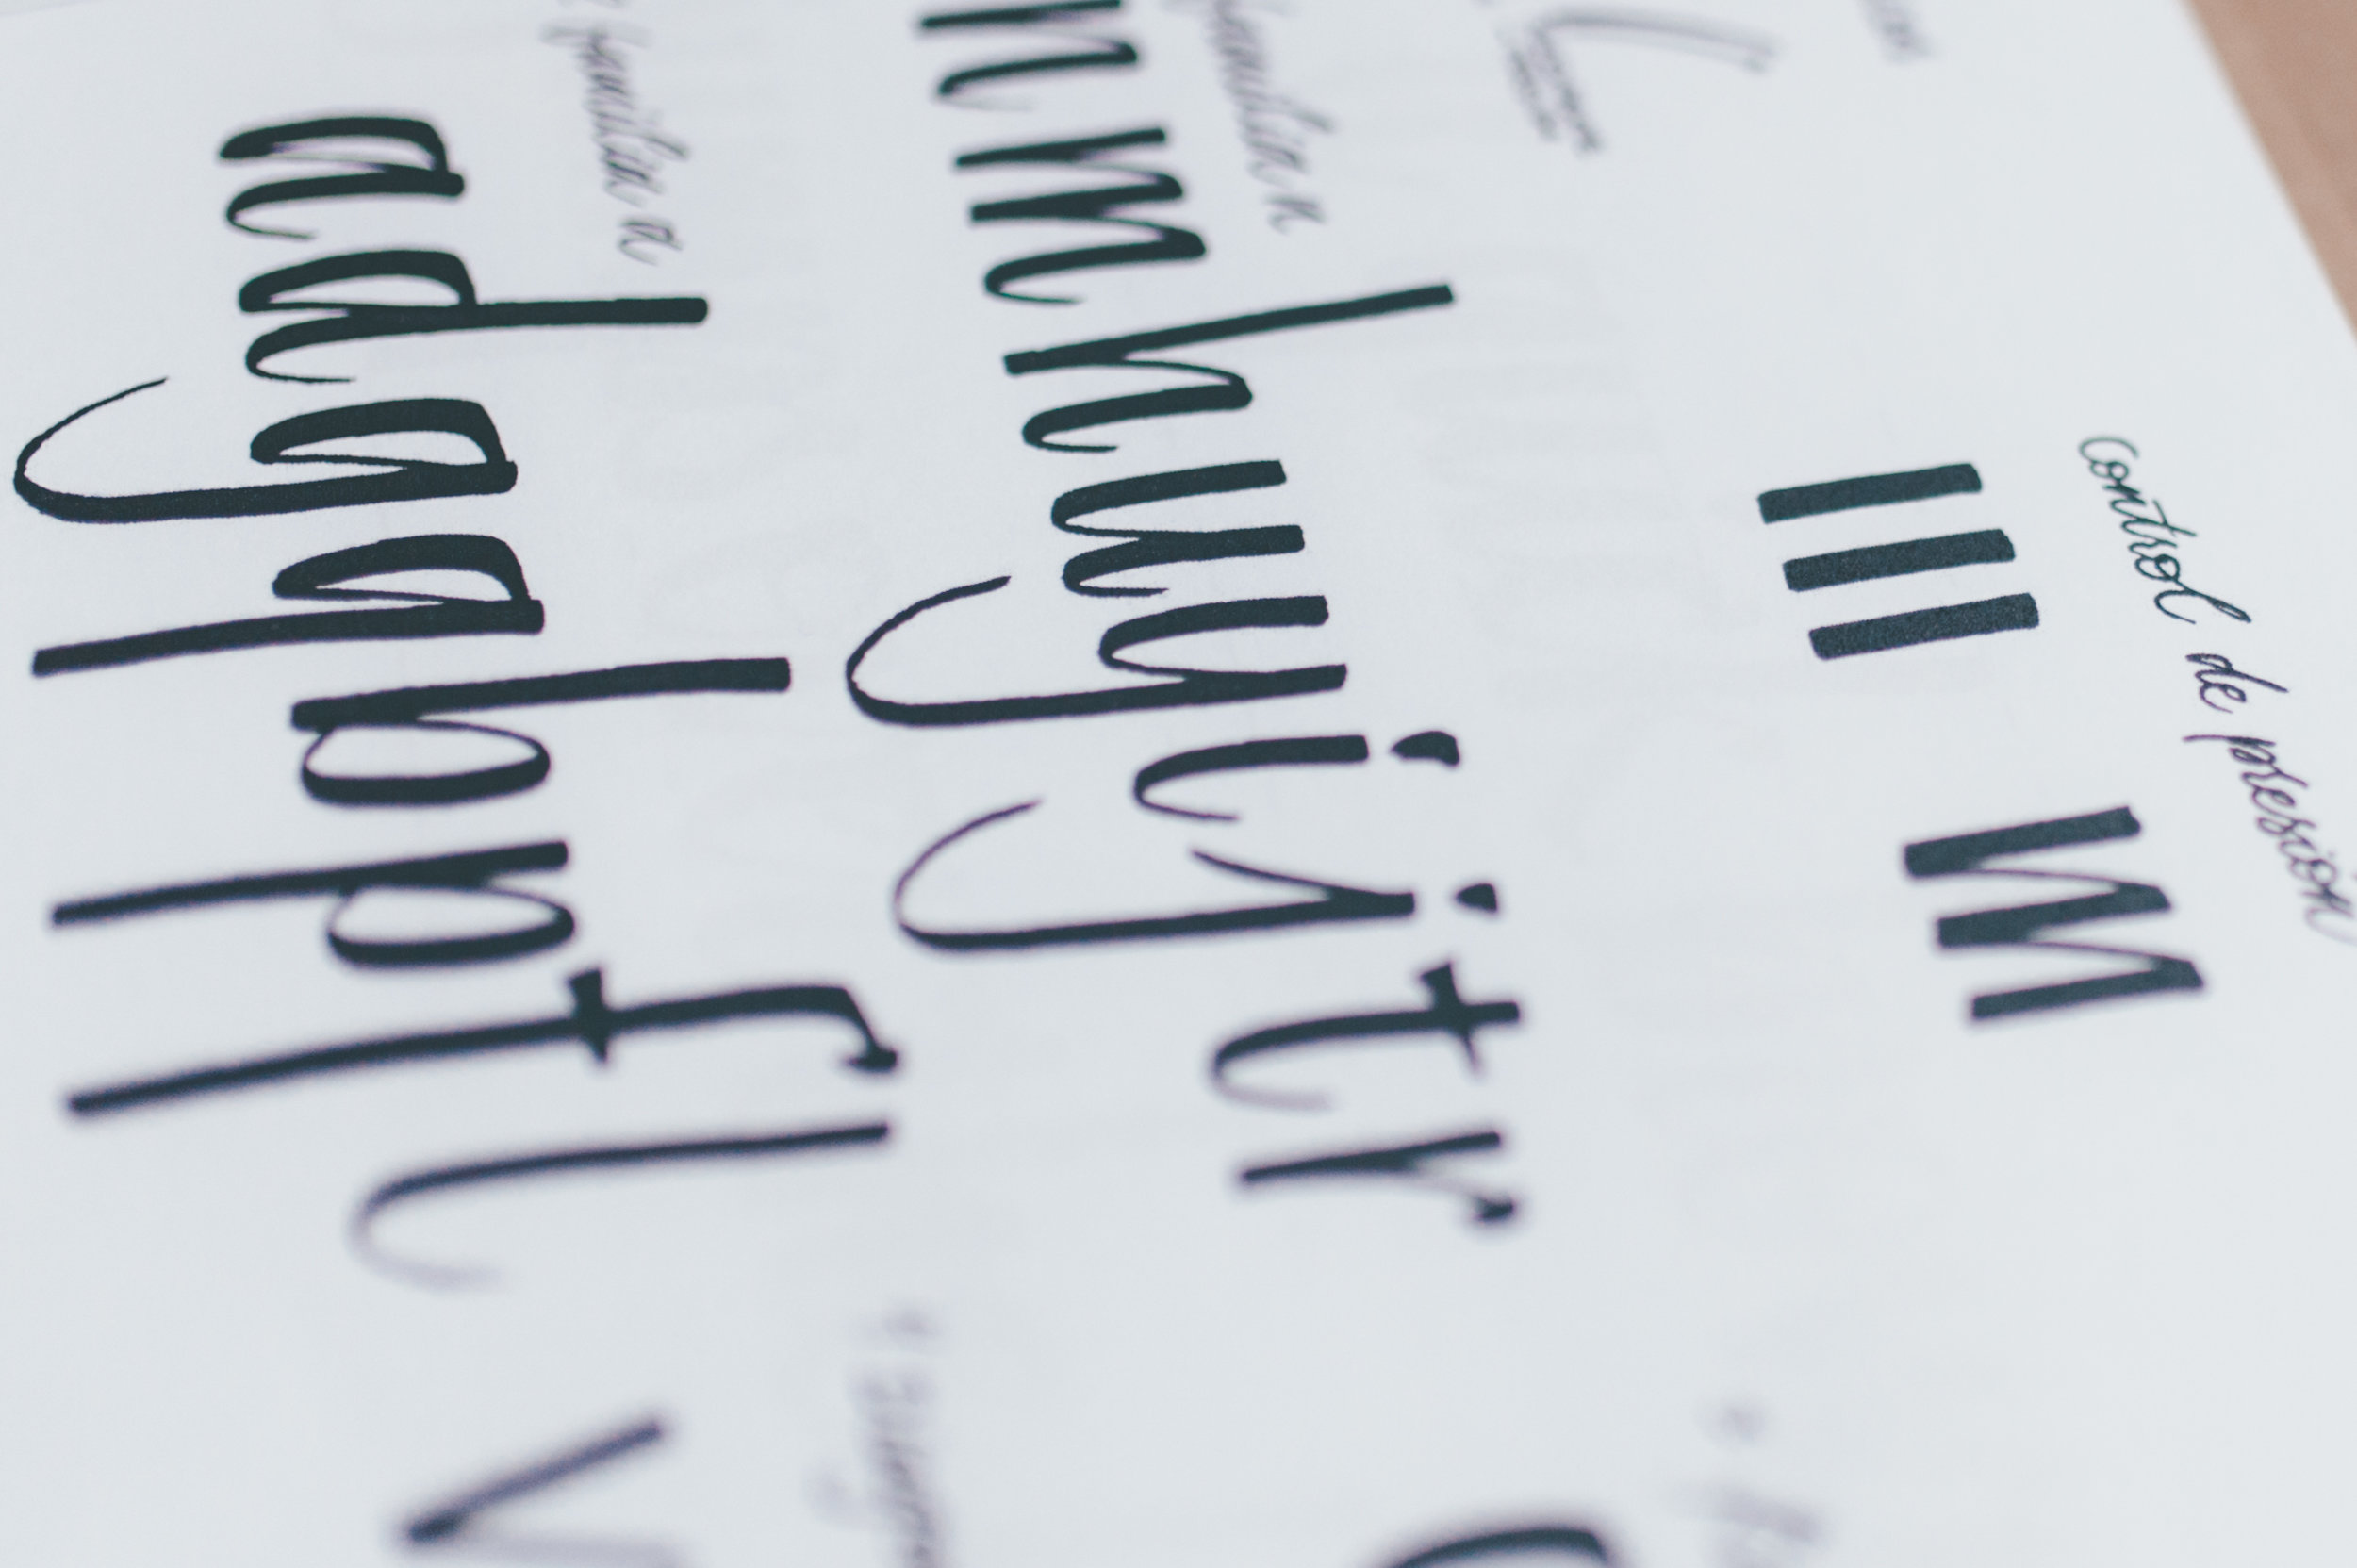 control de presión
familia n
n m h u y i j t r
familia a
a d g q b p f l